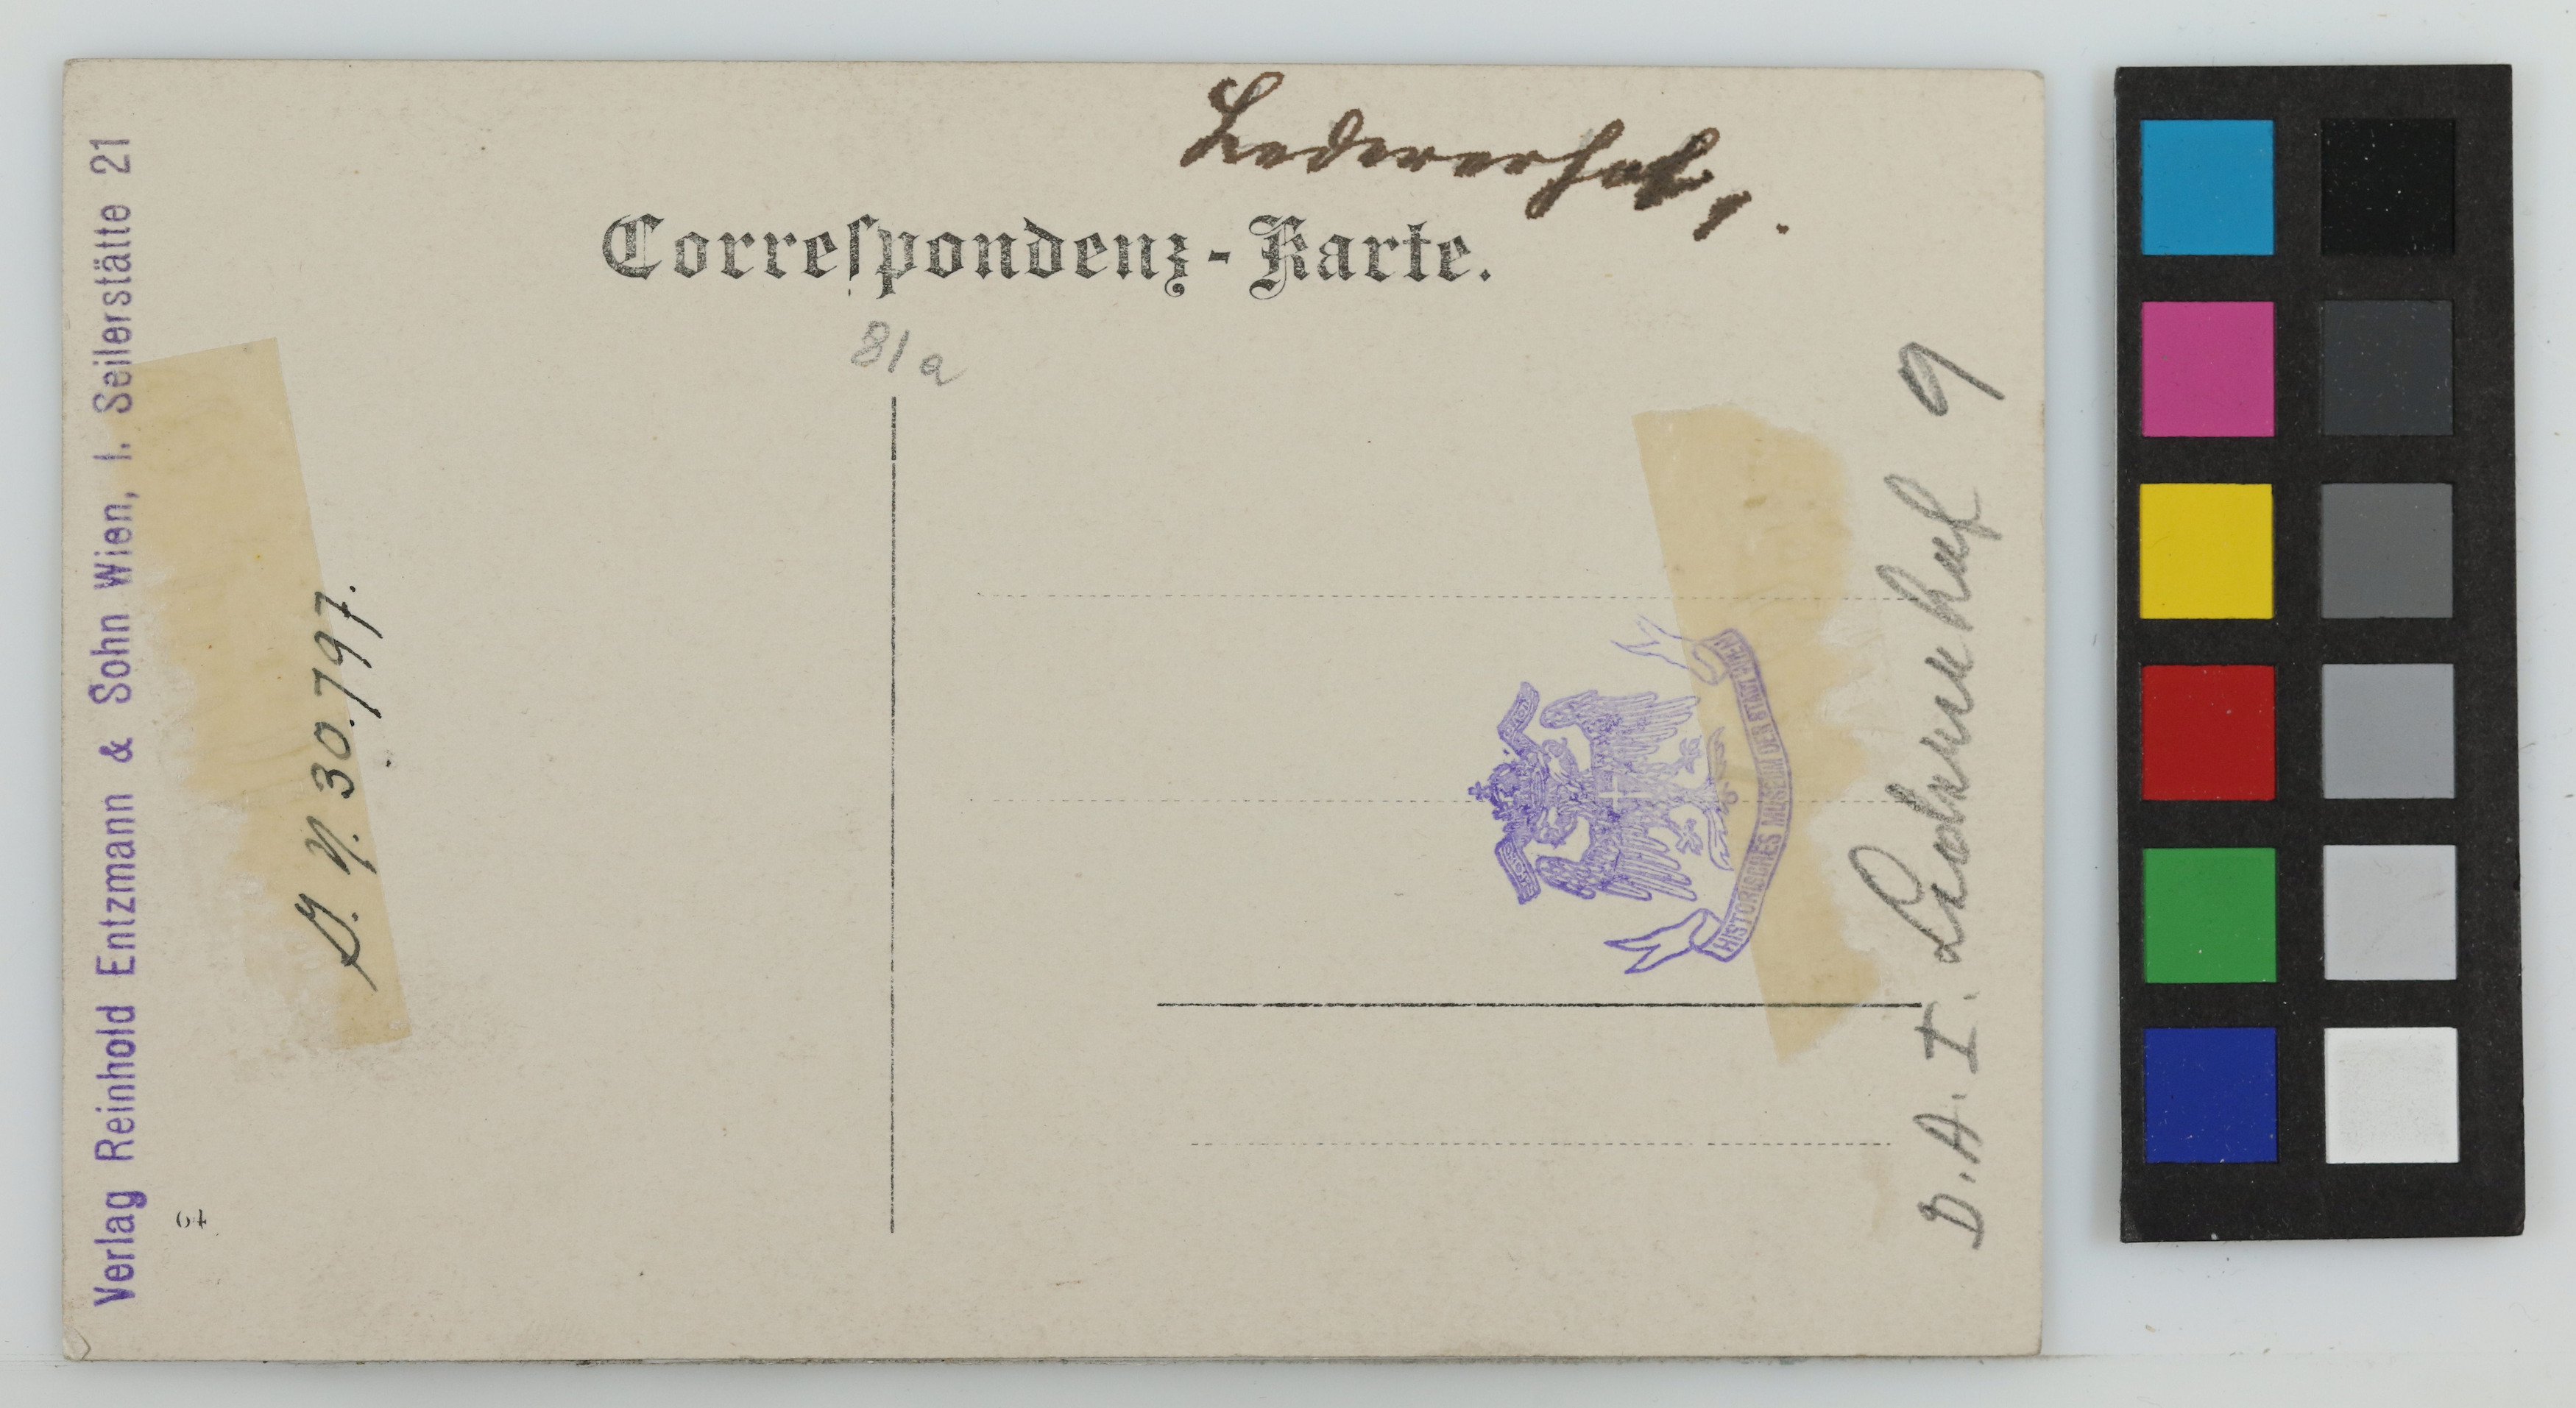 Ledererhof 9.
Correspondenz-Karte.
81a
Verlag Reinhold Entzmann & Sohn Wien, I. Seilerstätte 21
30.797.
64
HISTORISCHES MUSEUM DER STADT WIEN
D. A. I. Ledererhof 9